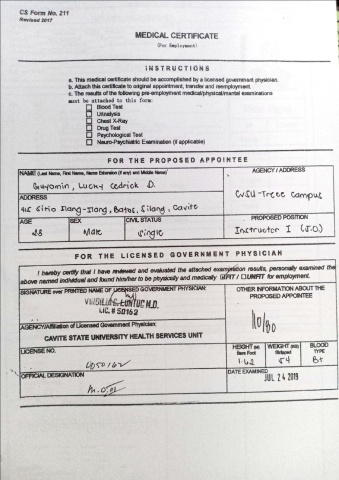 CS Form No. 211
Revised 2017
MEDICAL CERTIFICATE
(For Employment)
INSTRUCTIONS
a. This medical certificate should be accomplished by a licensed government physician.
b. Attach this certificate to original appointment, transfer and reemployment.
c. The results of the following pre-employment medical/physical/mental examinations
must be attached to this form:
Blood Test
Urinalysis
Chest X-Ray
Drug Test
Psychological Test
Neuro-Psychiatric Examination (if applicable)
FOR THE PROPOSED APPOINTEE
NAME (Last Name, First Name, Name Extension (if any) and Middle Name)
AGENCY / ADDRESS
Guyamin, Lucky Cedrick D.
CvSU-Trece Campus
ADDRESS
415 Sitio Ilang-Ilang, Batas, Silang, Cavite
AGE
SEX
CIVIL STATUS
PROPOSED POSITION
28
Male
Single
Instructor I (J.O.)
FOR THE LICENSED GOVERNMENT PHYSICIAN
I hereby certify that I have reviewed and evaluated the attached examination results, personally examined the
above named individual and found him/her to be physically and medically FIT / UNFIT for employment.
SIGNATURE over PRINTED NAME OF LICENSED GOVERNMENT PHYSICIAN:
OTHER INFORMATION ABOUT THE
PROPOSED APPOINTEE
M.D.
LIC. # 50162
110/80
AGENCY/Affiliation of Licensed Government Physician:
CAVITE STATE UNIVERSITY HEALTH SERVICES UNIT
LICENSE NO.
HEIGHT (M) Bare Foot
WEIGHT (KG) Stripped
BLOOD TYPE
0050162
1.62
54
B+
OFFICIAL DESIGNATION
DATE EXAMINED
JUL 24 2019